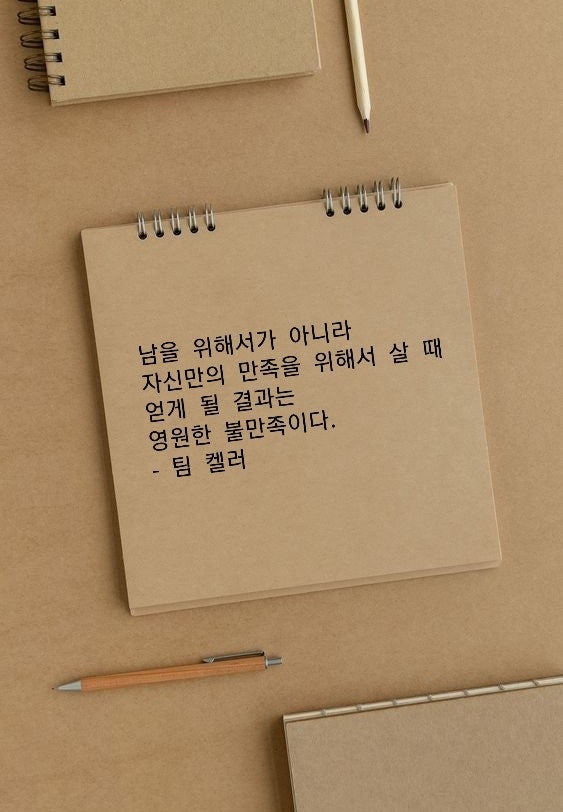 남을 위해서가 아니라
자신만의 만족을 위해서 살 때
얻게 될 결과는
영원한 불만족이다.
- 팀 켈러